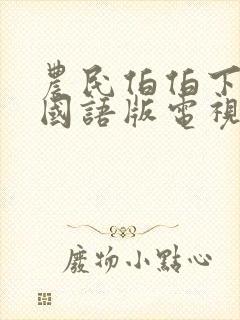 農民伯伯下
國語版電視
廢物小點心